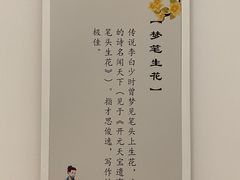 【梦笔生花】
传说李白少时曾梦见笔头上生花,
的诗名闻天下(见于《开元天宝遗事
笔头生花》)。指才思俊逸,写作
极佳。